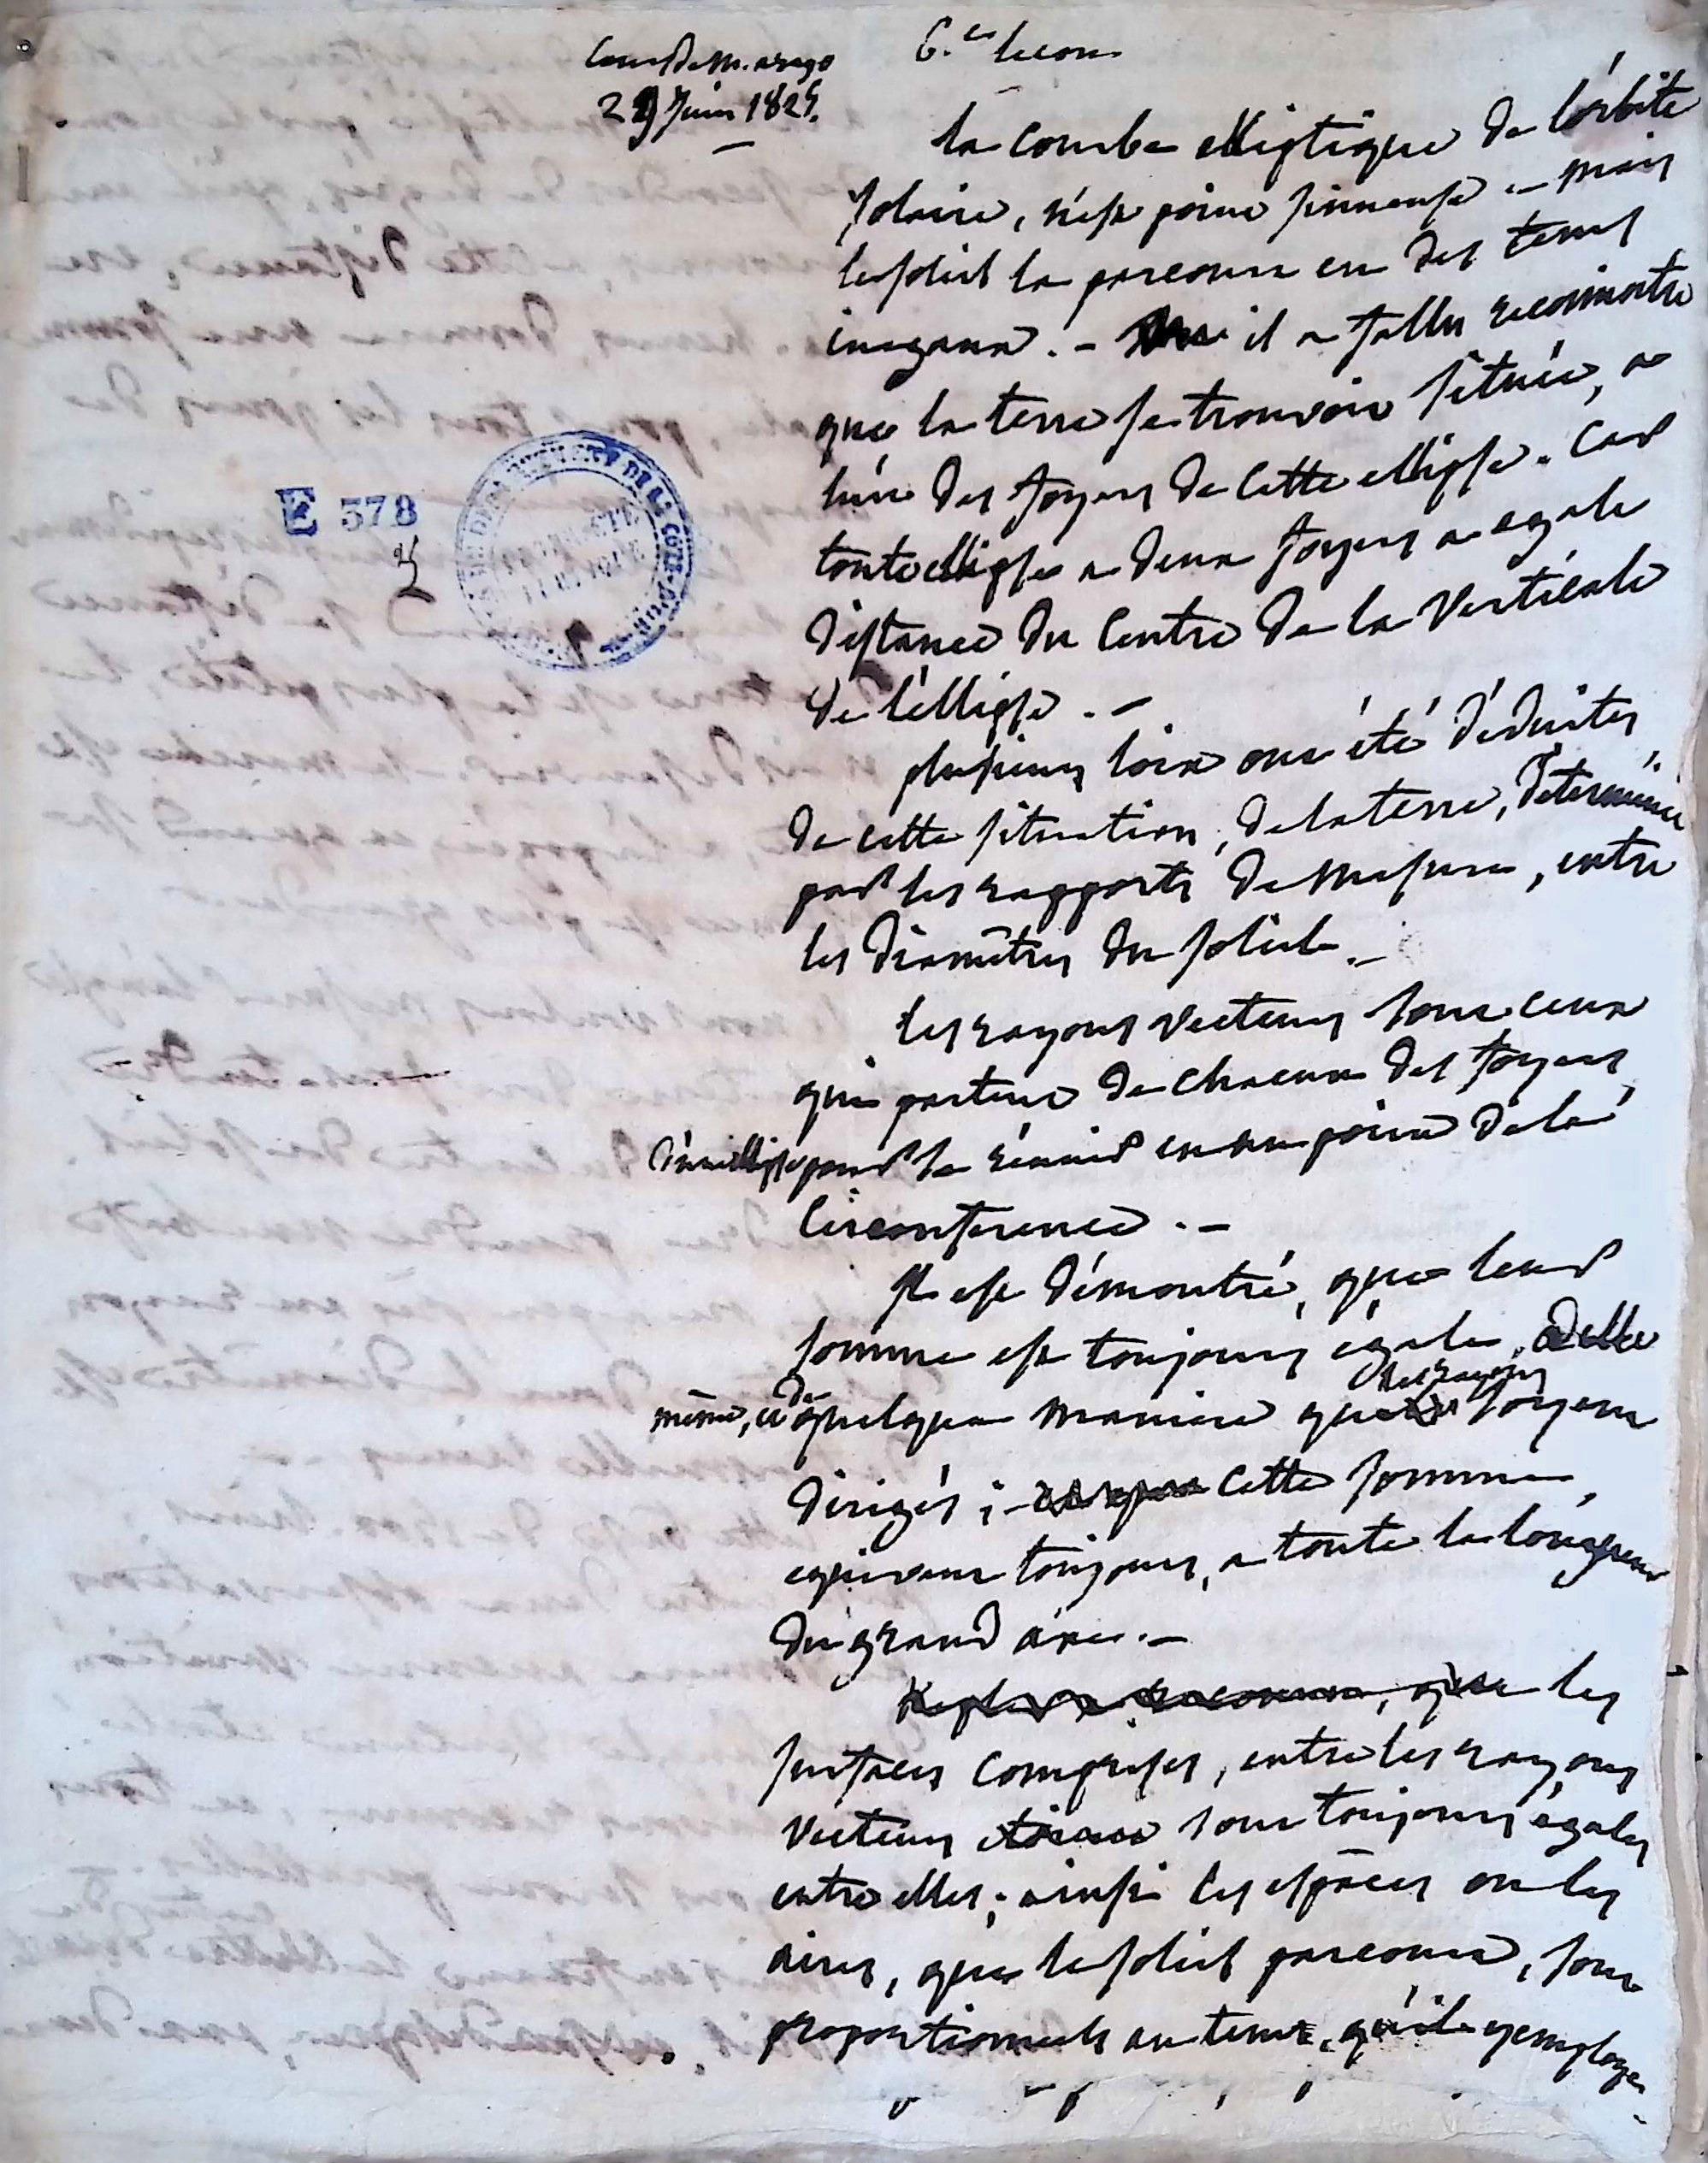 Cours de M. arago
6.e lecon
29 Juin 1825.
la courbe elliptique de l'orbite
solaire, n'est point sinueuse – mais
le soleil la parcourt en des tems
inegaux. – il a fallu reconnoitre
que la terre se trouvoit située, a
l'un des foyers de cette ellipse. Car
toute ellipse a deux foyers a egale
distance du Centre de la Verticale
de l'ellipse. –
plusieurs loix ont été déduites
de cette situation, de la terre, déterminée
par les rapports de mesure, entre
les diamètres du soleil. –
les rayons vecteurs sont ceux
qui partent de chacun des foyers
d'une ellipse pour se réunir en un point de la
Circonference. –
Il est démontré, que leur
somme est toujours égale, a elle
même, et de quelque maniere que les rayons soyent
dirigés ; – cette somme,
equivaut toujours, a toute la longueur
du grand axe. –
les
surfaces comprises, entre les rayons
vecteurs sont toujours égales
entre elles ; ainsi les espaces ou les
aires, que le soleil parcourt, sont
proportionnels au tems, qu'il y employe.
E 378